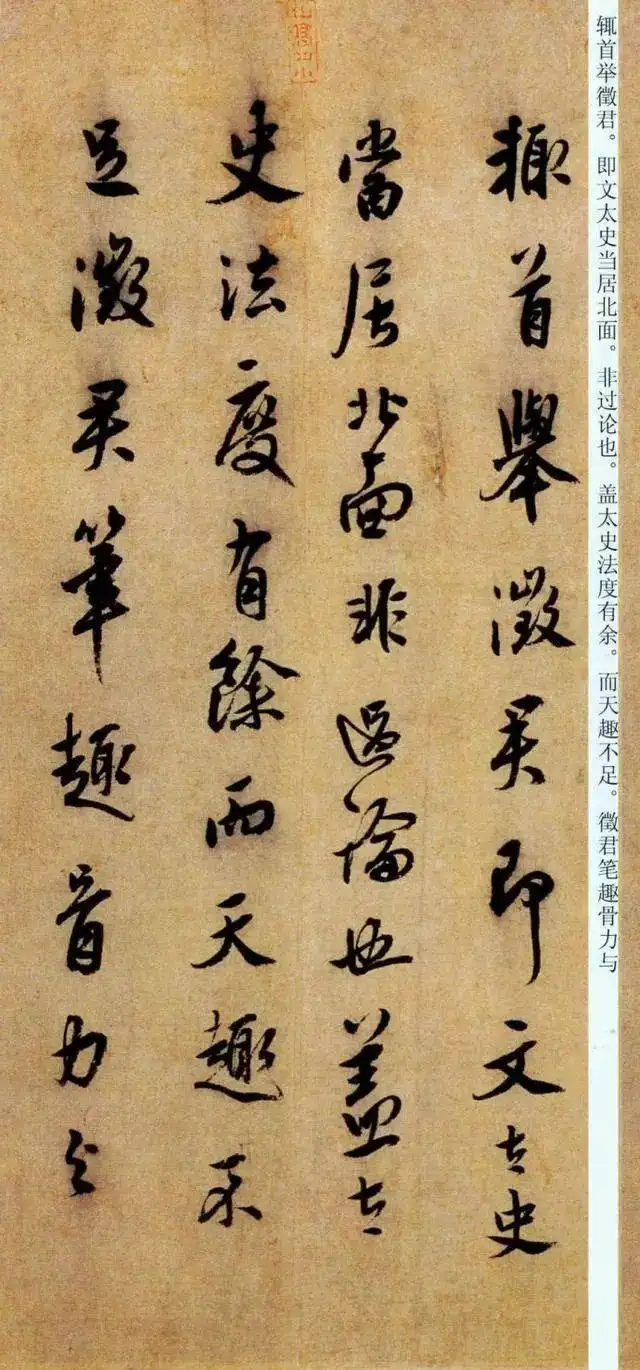 辄首举徵君。即文太史当居北面。非过论也。盖太史法度有余。而天趣不足。徵君笔趣骨力与
輙首舉徵君即文太史
當居北面非過論也蓋太
史法度有餘而天趣不
足徵君筆趣骨力与